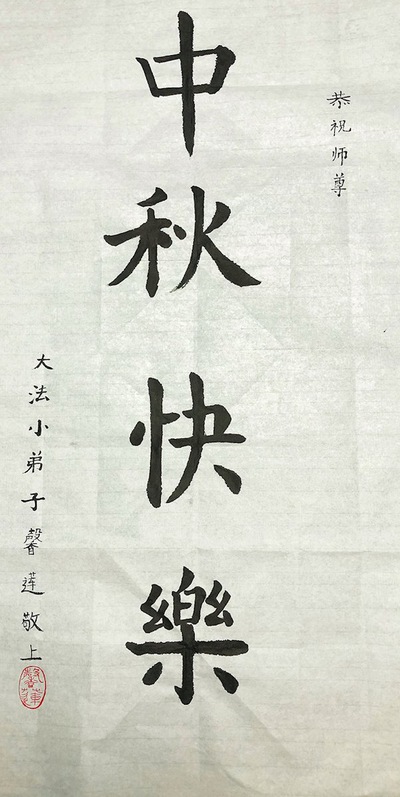 恭祝师尊
中秋快樂
大法小弟子馨莲敬上